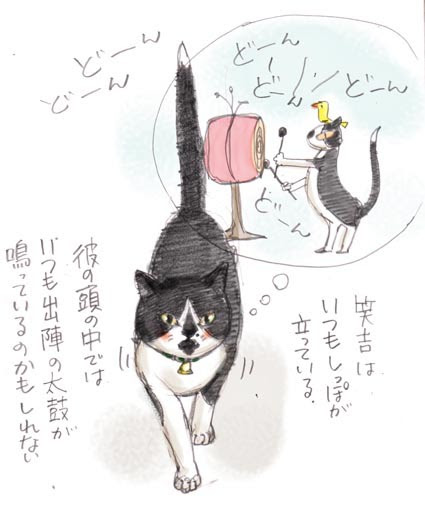 どーん
どーん
どーん
どーん
どーん
どーん
笑吉は
いつもしっぽが
立っている。
彼の頭の中では
いつも出陣の太鼓が
鳴っているのかもしれない